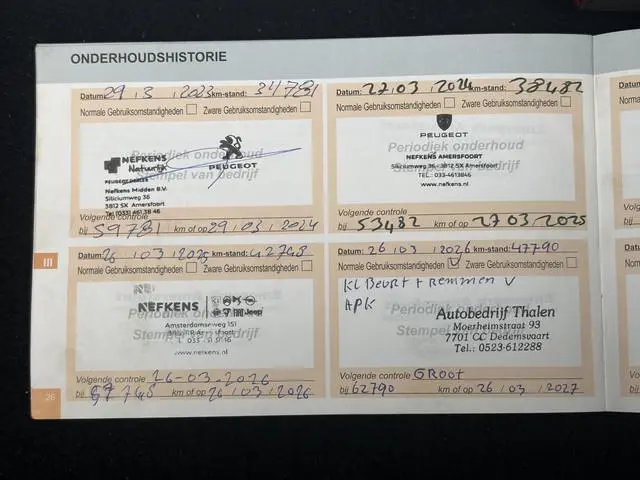 ONDERHOUDSHISTORIE
Datum: 29 / 3 / 2023 km-stand: 34781
Normale Gebruiksomstandigheden Zware Gebruiksomstandigheden
Periodiek onderhoud
Stempel van bedrijf
NEFKENS
Natuurlijk
PEUGEOT
PEUGEOT DEALER
Nefkens Midden B.V.
Siliciumweg 36
3812 SX Amersfoort
Tel: (033) 461 38 46
Volgende controle
bij 59781 km of op 29 / 03 / 2024
Datum: 27 / 03 / 2024 km-stand: 38482
Normale Gebruiksomstandigheden Zware Gebruiksomstandigheden
PEUGEOT
Periodiek onderhoud
NEFKENS AMERSFOORT
Siliciumweg 36 - 3812 SX Amersfoort
Stempel van bedrijf
TEL.: 033-4613846
www.nefkens.nl
Volgende controle
bij 53482 km of op 27 / 03 / 2025
III
Datum: 26 / 03 / 2025 km-stand: 42748
Normale Gebruiksomstandigheden Zware Gebruiksomstandigheden
Periodiek onderhoud
NEFKENS
Jeep
Amsterdamseweg 151
Stempel van bedrijf
www.nefkens.nl
Volgende controle 26-03-2026
bij 57748 km of op 26 / 03 / 2026
Datum: 26 / 03 / 2026 km-stand: 47790
Normale Gebruiksomstandigheden V Zware Gebruiksomstandigheden
KL Beurt + Remmen V
APK
Periodiek onderhoud
Stempel van bedrijf
Autobedrijf Thalen
Moerheimstraat 93
7701 CC Dedemsvaart
Tel.: 0523-612288
Volgende controle GROOT
bij 62790 km of op 26 / 03 / 2027
26